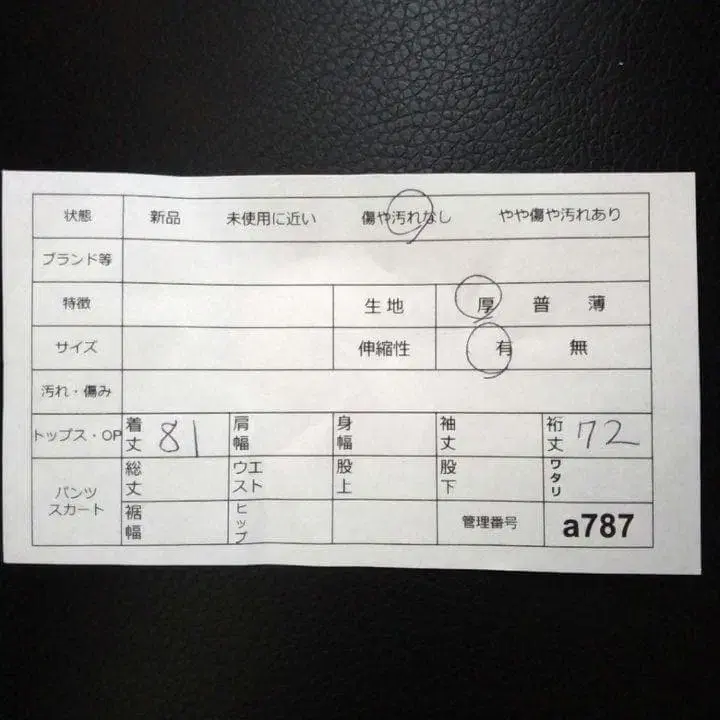 状態 新品 未使用に近い 傷や汚れなし やや傷や汚れあり
ブランド等
特徴 生地 厚 普 薄
サイズ 伸縮性 有 無
汚れ・傷み
トップス・OP 着丈 81 肩幅 身幅 袖丈 裄丈 72
パンツ スカート 総丈 ウエスト 股上 股下 ワタリ
裾幅 ヒップ 管理番号 a787